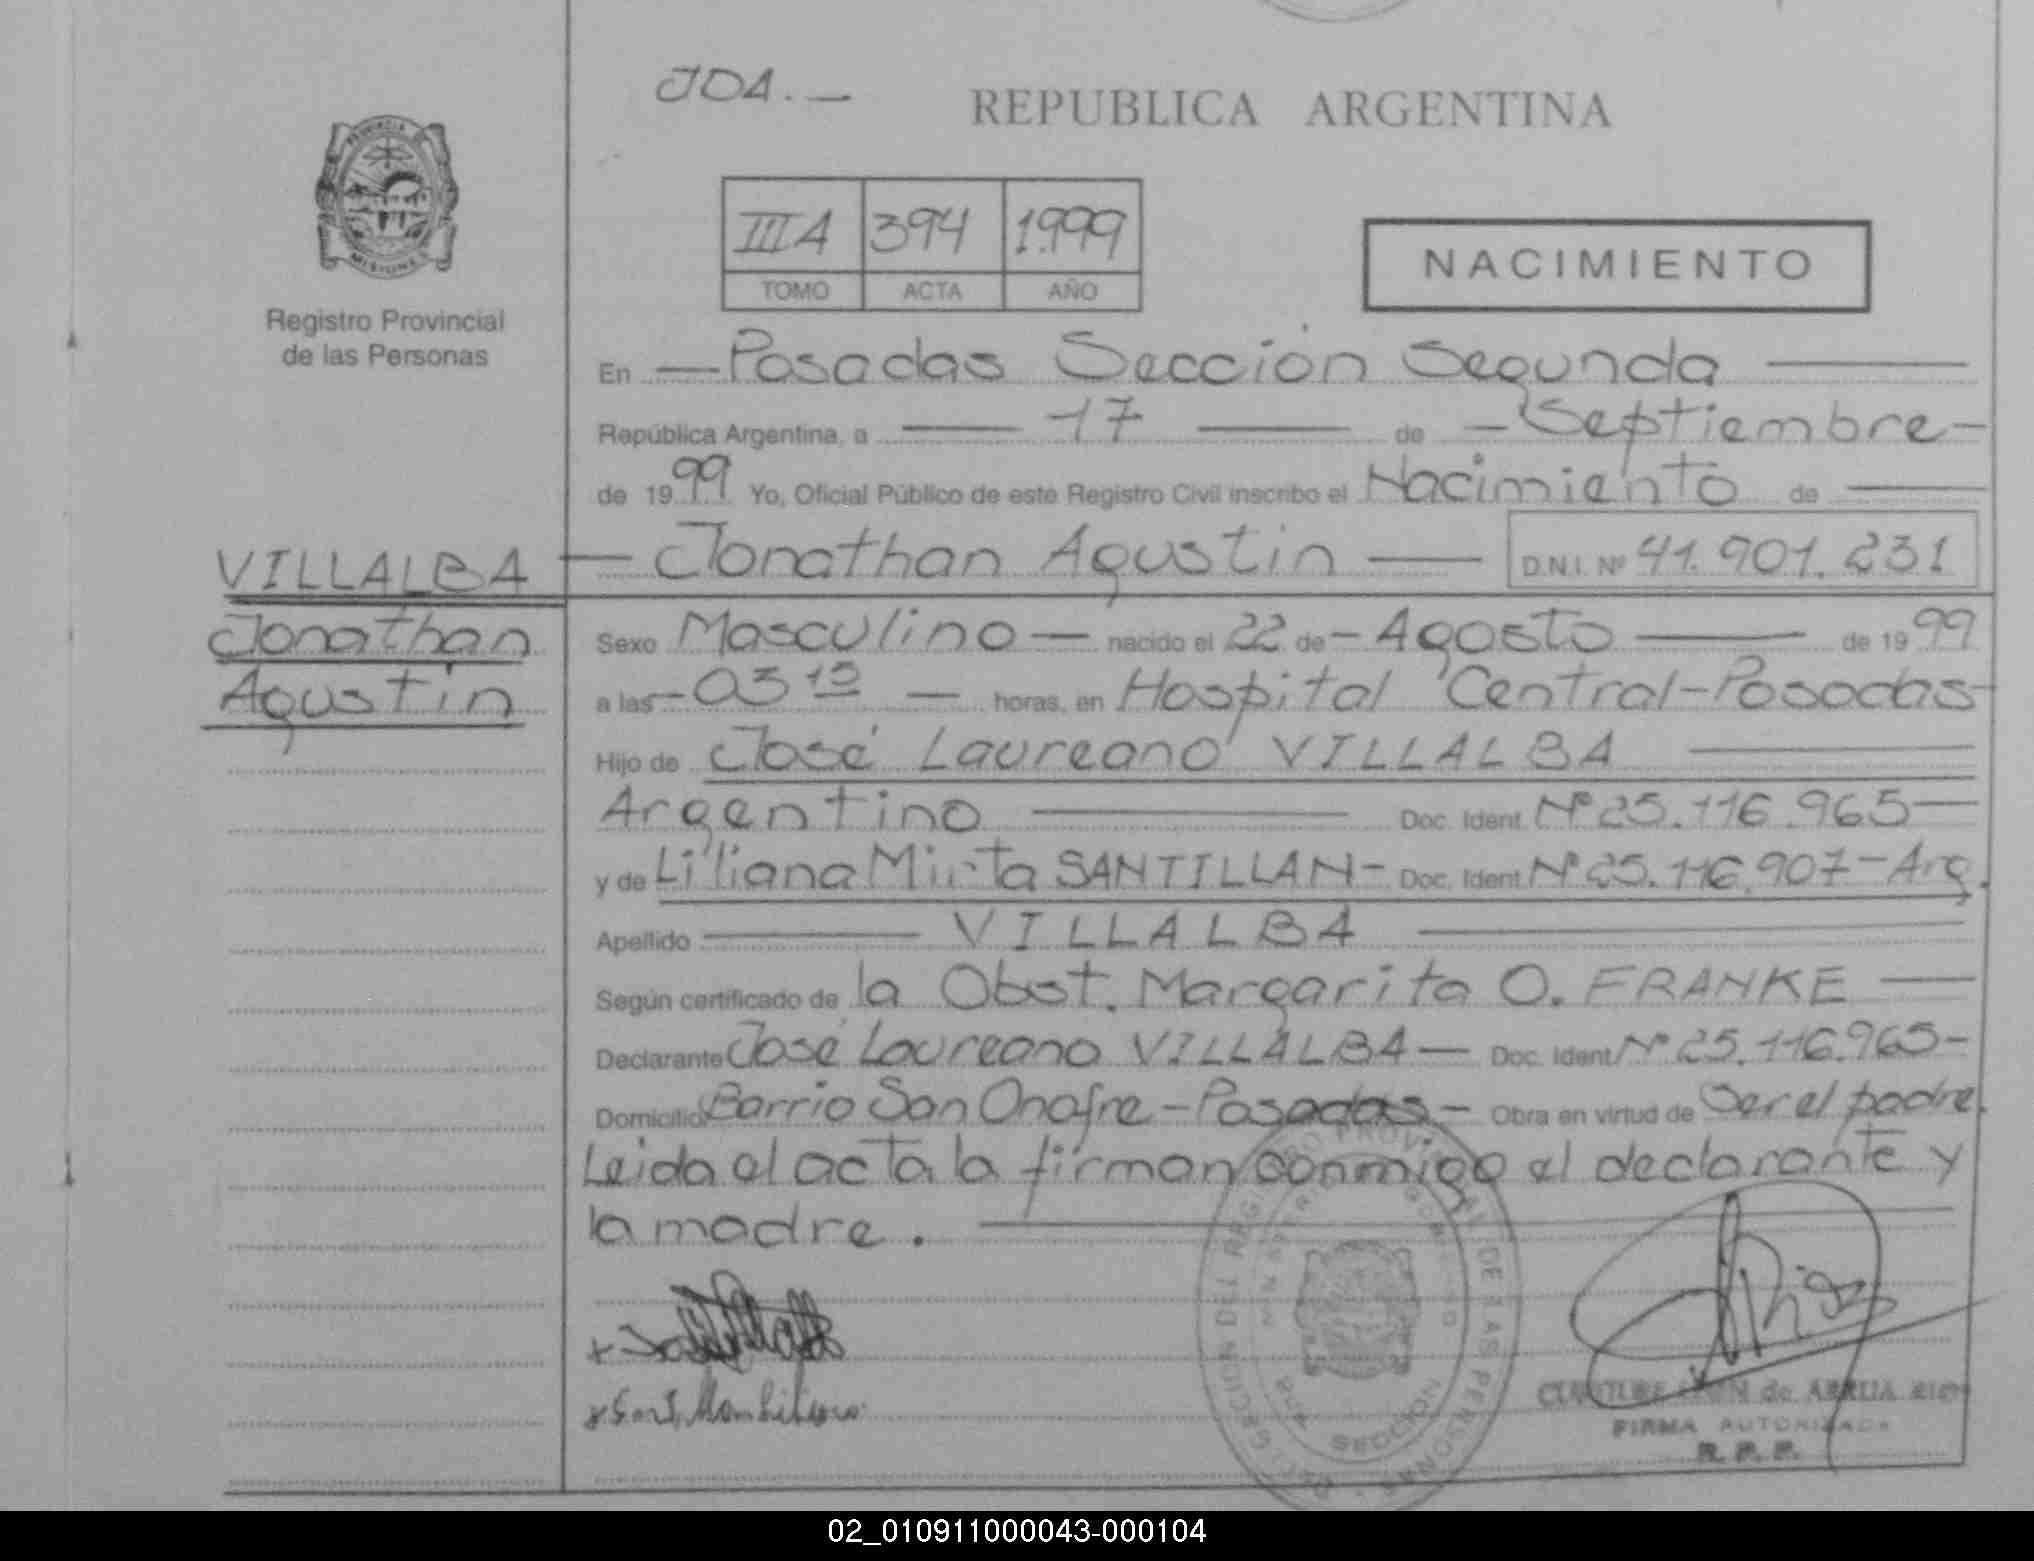 JDA.—
REPUBLICA ARGENTINA
PROVINCIA
MISIONES
Registro Provincial
de las Personas
III A 394 1999
TOMO ACTA AÑO
NACIMIENTO
En — Posadas Sección Segunda —
República Argentina, a — 17 — de — Septiembre —
de 1999 Yo, Oficial Público de este Registro Civil inscribo el Nacimiento de —
VILLALBA — Jonathan Agustin — D.N.I. Nº 41.901.231
Jonathan
Agustin
Sexo Masculino — nacido el 22 de — Agosto — de 1999
a las — 03 15 — horas, en Hospital Central-Posadas-
Hijo de José Laureano VILLALBA —
Argentino — Doc. Ident. Nº 25.116.965 —
y de Liliana Mirta SANTILLAN - Doc. Ident. Nº 25.116.907 - Arg.
Apellido — VILLALBA —
Según certificado de la Obst. Margarita O. FRANKE —
Declarante José Laureano VILLALBA — Doc. Ident. Nº 25.116.965 -
Domicilio Barrio San Onofre - Posadas - Obra en virtud de Ser el padre.
Leida el acta la firman conmigo el declarante y
la madre. —
DEL REGISTRO PROVINCIAL DE LAS PERSONAS
MINISTERIO
SECCION
de ARRUA
FIRMA AUTORIZADA
R. P. P.
02_010911000043-000104